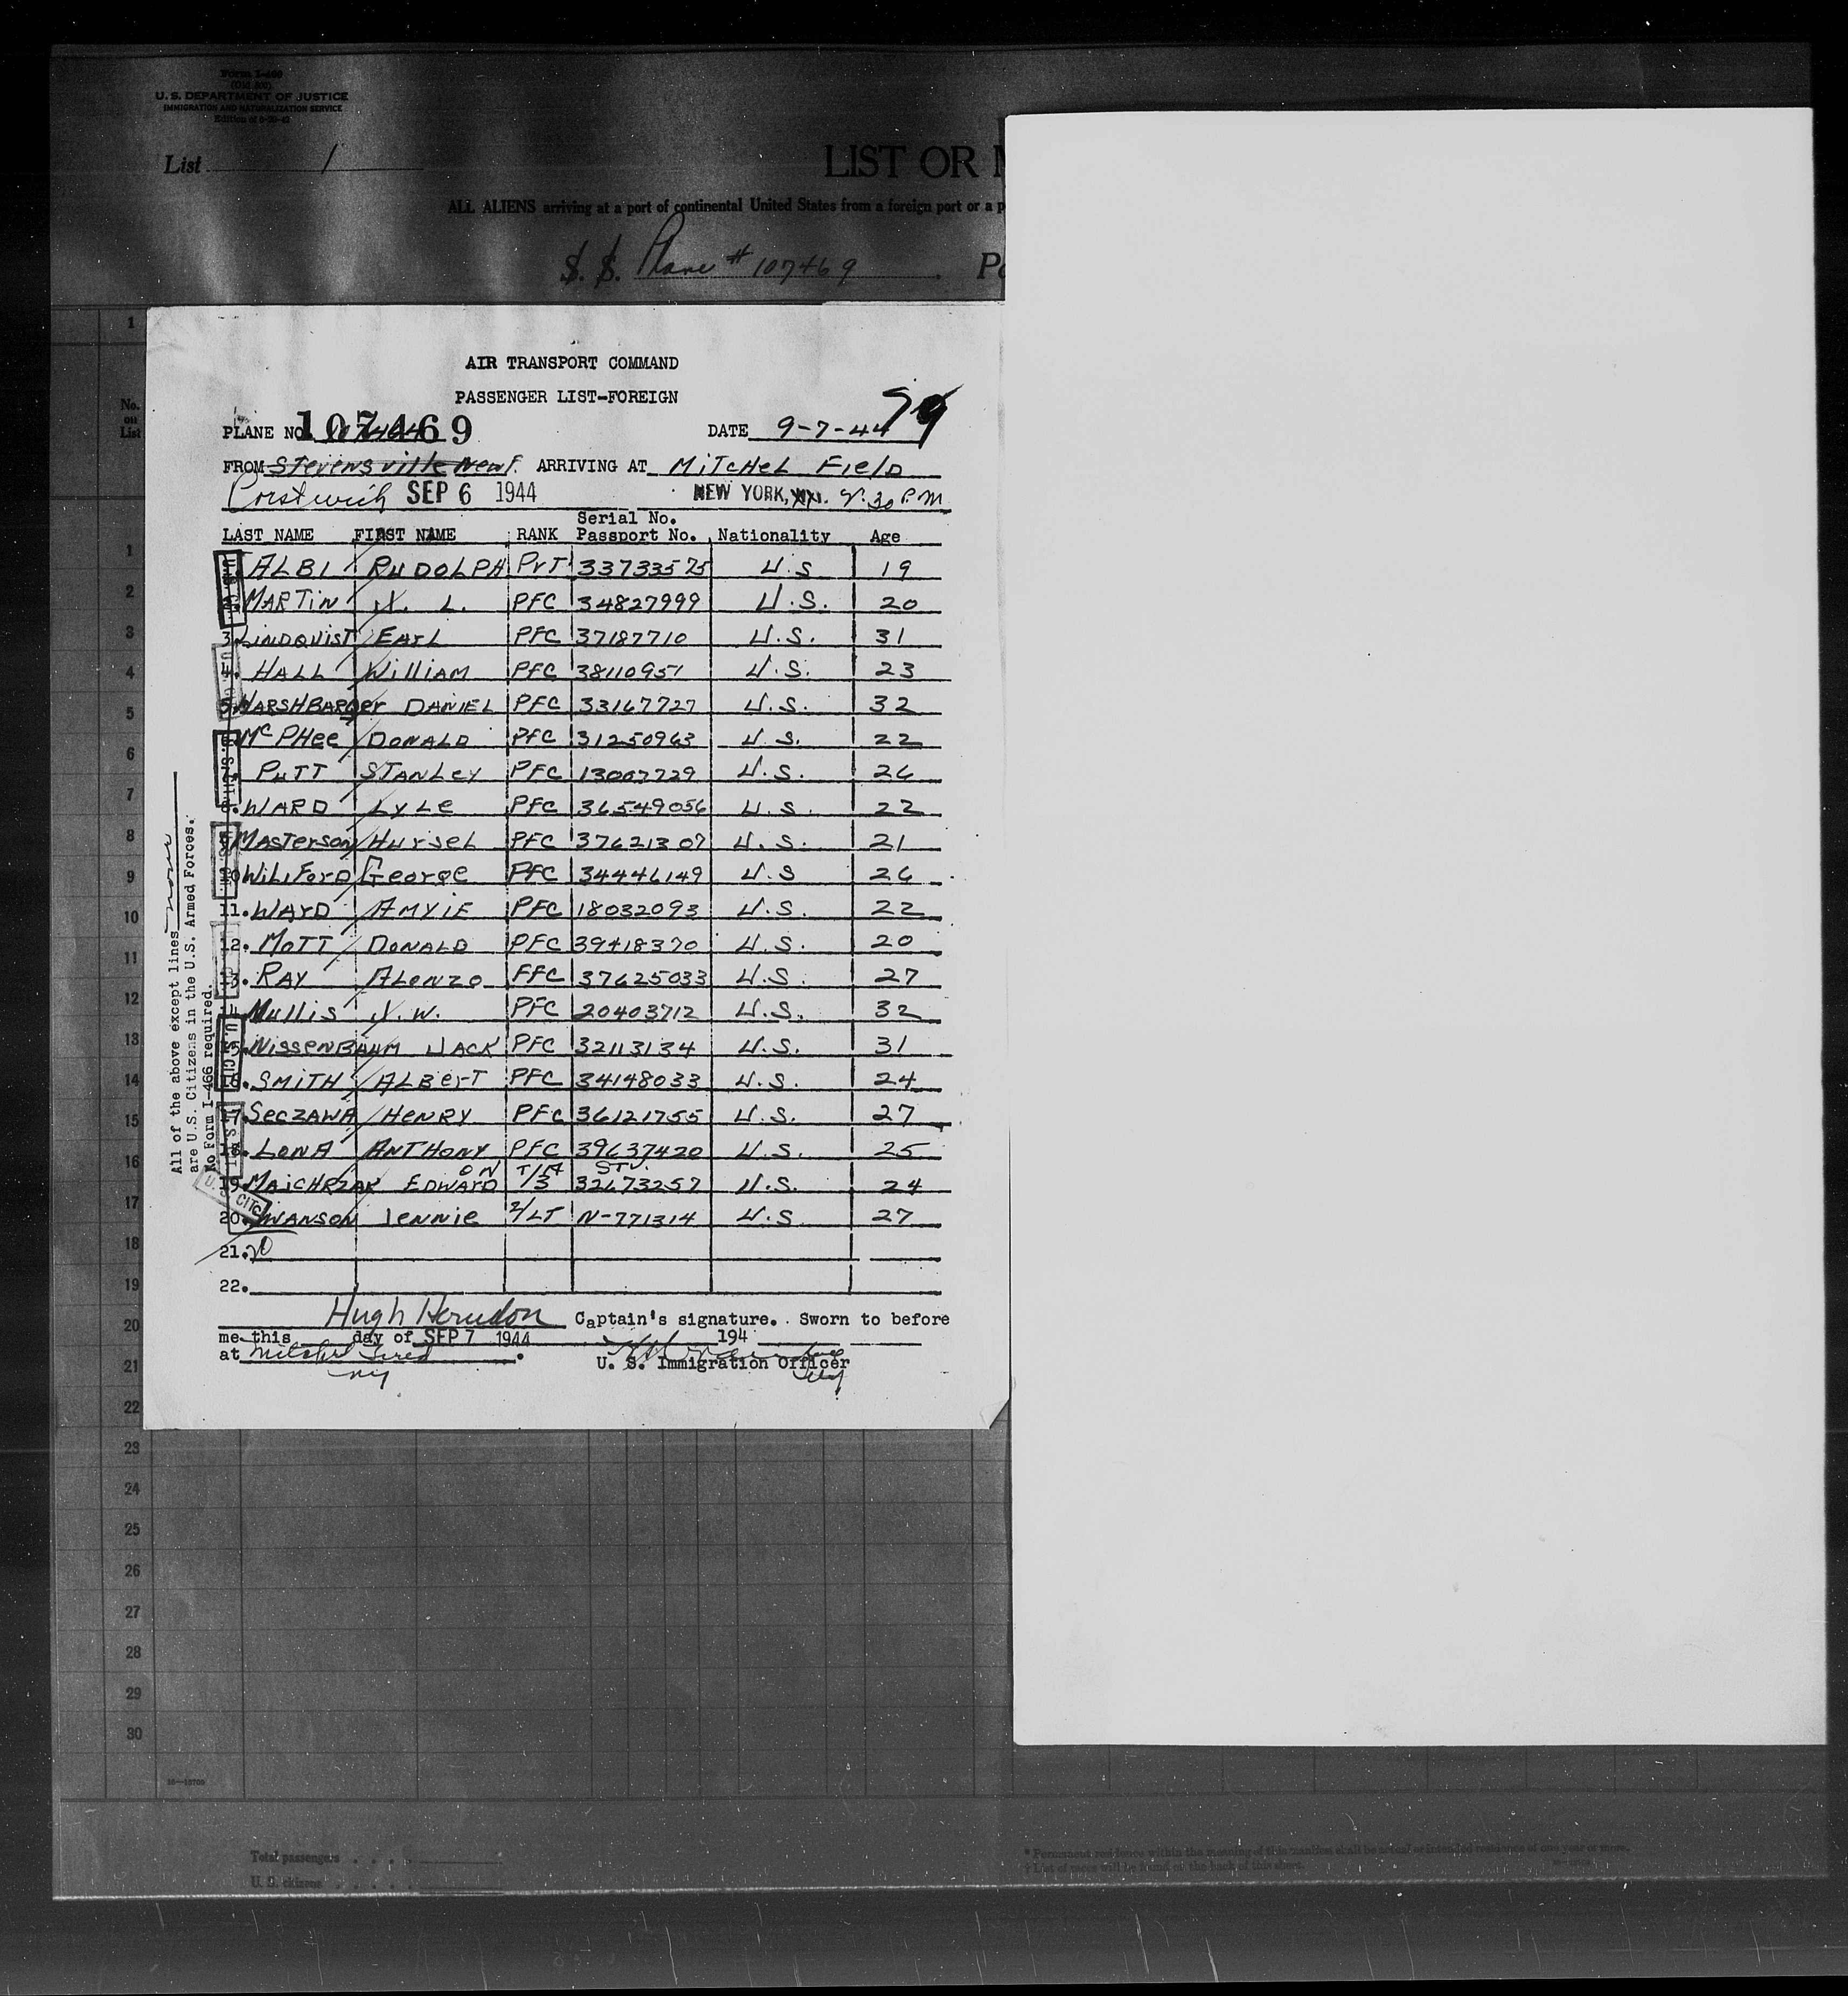 Form I-466
(Old 500)
U. S. DEPARTMENT OF JUSTICE
IMMIGRATION AND NATURALIZATION SERVICE
List 1
LIST OR
ALL ALIENS arriving at a port of continental United States from a foreign port or a p
S. S. Plane # 107469
AIR TRANSPORT COMMAND
PASSENGER LIST-FOREIGN
PLANE NO 107469 DATE 9-7-44
FROM Stevensville Newf. ARRIVING AT MITCHEL FIELD
Prestwich SEP 6 1944 NEW YORK, 9:30 P.M.
LAST NAME FIRST NAME RANK Serial No. Passport No. Nationality Age
1. ALBI RUDOLPH PVT 33733575 U.S 19
2. MARTIN L. PFC 34827999 U.S. 20
3. LINDQUIST EARL PFC 37187710 U.S. 31
4. HALL WILLIAM PFC 38110951 U.S. 23
5. HARSHBARGER DANIEL PFC 33167727 U.S. 32
6. McPHEE DONALD PFC 31250963 U.S. 22
7. PUTT STANLEY PFC 13007729 U.S. 26
8. WARD LYLE PFC 36549056 U.S. 22
9. MASTERSON HURSEL PFC 37621307 U.S. 21
10 WILIFORD GEORGE PFC 34446149 U.S 26
11. WARD AMYIE PFC 18032093 U.S. 22
12. MOTT DONALD PFC 39418370 U.S. 20
13. RAY ALONZO PFC 37625033 U.S. 27
14. Mullis W. PFC 20403712 U.S. 32
15. NISSENBAUM JACK PFC 32113134 U.S. 31
16. SMITH ALBERT PFC 34148033 U.S. 24
17. SECZAWA HENRY PFC 36121755 U.S. 27
18. LONA ANTHONY PFC 39637420 U.S. 25
19. MAJCHRZAK EDWARD T/3 32673257 U.S. 24
20. SWANSON JENNIE 2/LT N-771314 U.S 27
21.
22.
Hugh Herndon Captain's signature. Sworn to before
me this day of SEP 7 1944 194
at Mitchel Field U. S. Immigration Officer
NY
All of the above except lines none
are U.S. Citizens in the U.S. Armed Forces.
No Form I-466 required.
No. on List
1
1
2
3
4
5
6
7
8
9
10
11
12
13
14
15
16
17
18
19
20
21
22
23
24
25
26
27
28
29
30
Total passengers
U. S. citizens
* Permanent residence within the meaning of this manifest shall be actual or intended residence of one year or more.
† List of races will be found on the back of this sheet.